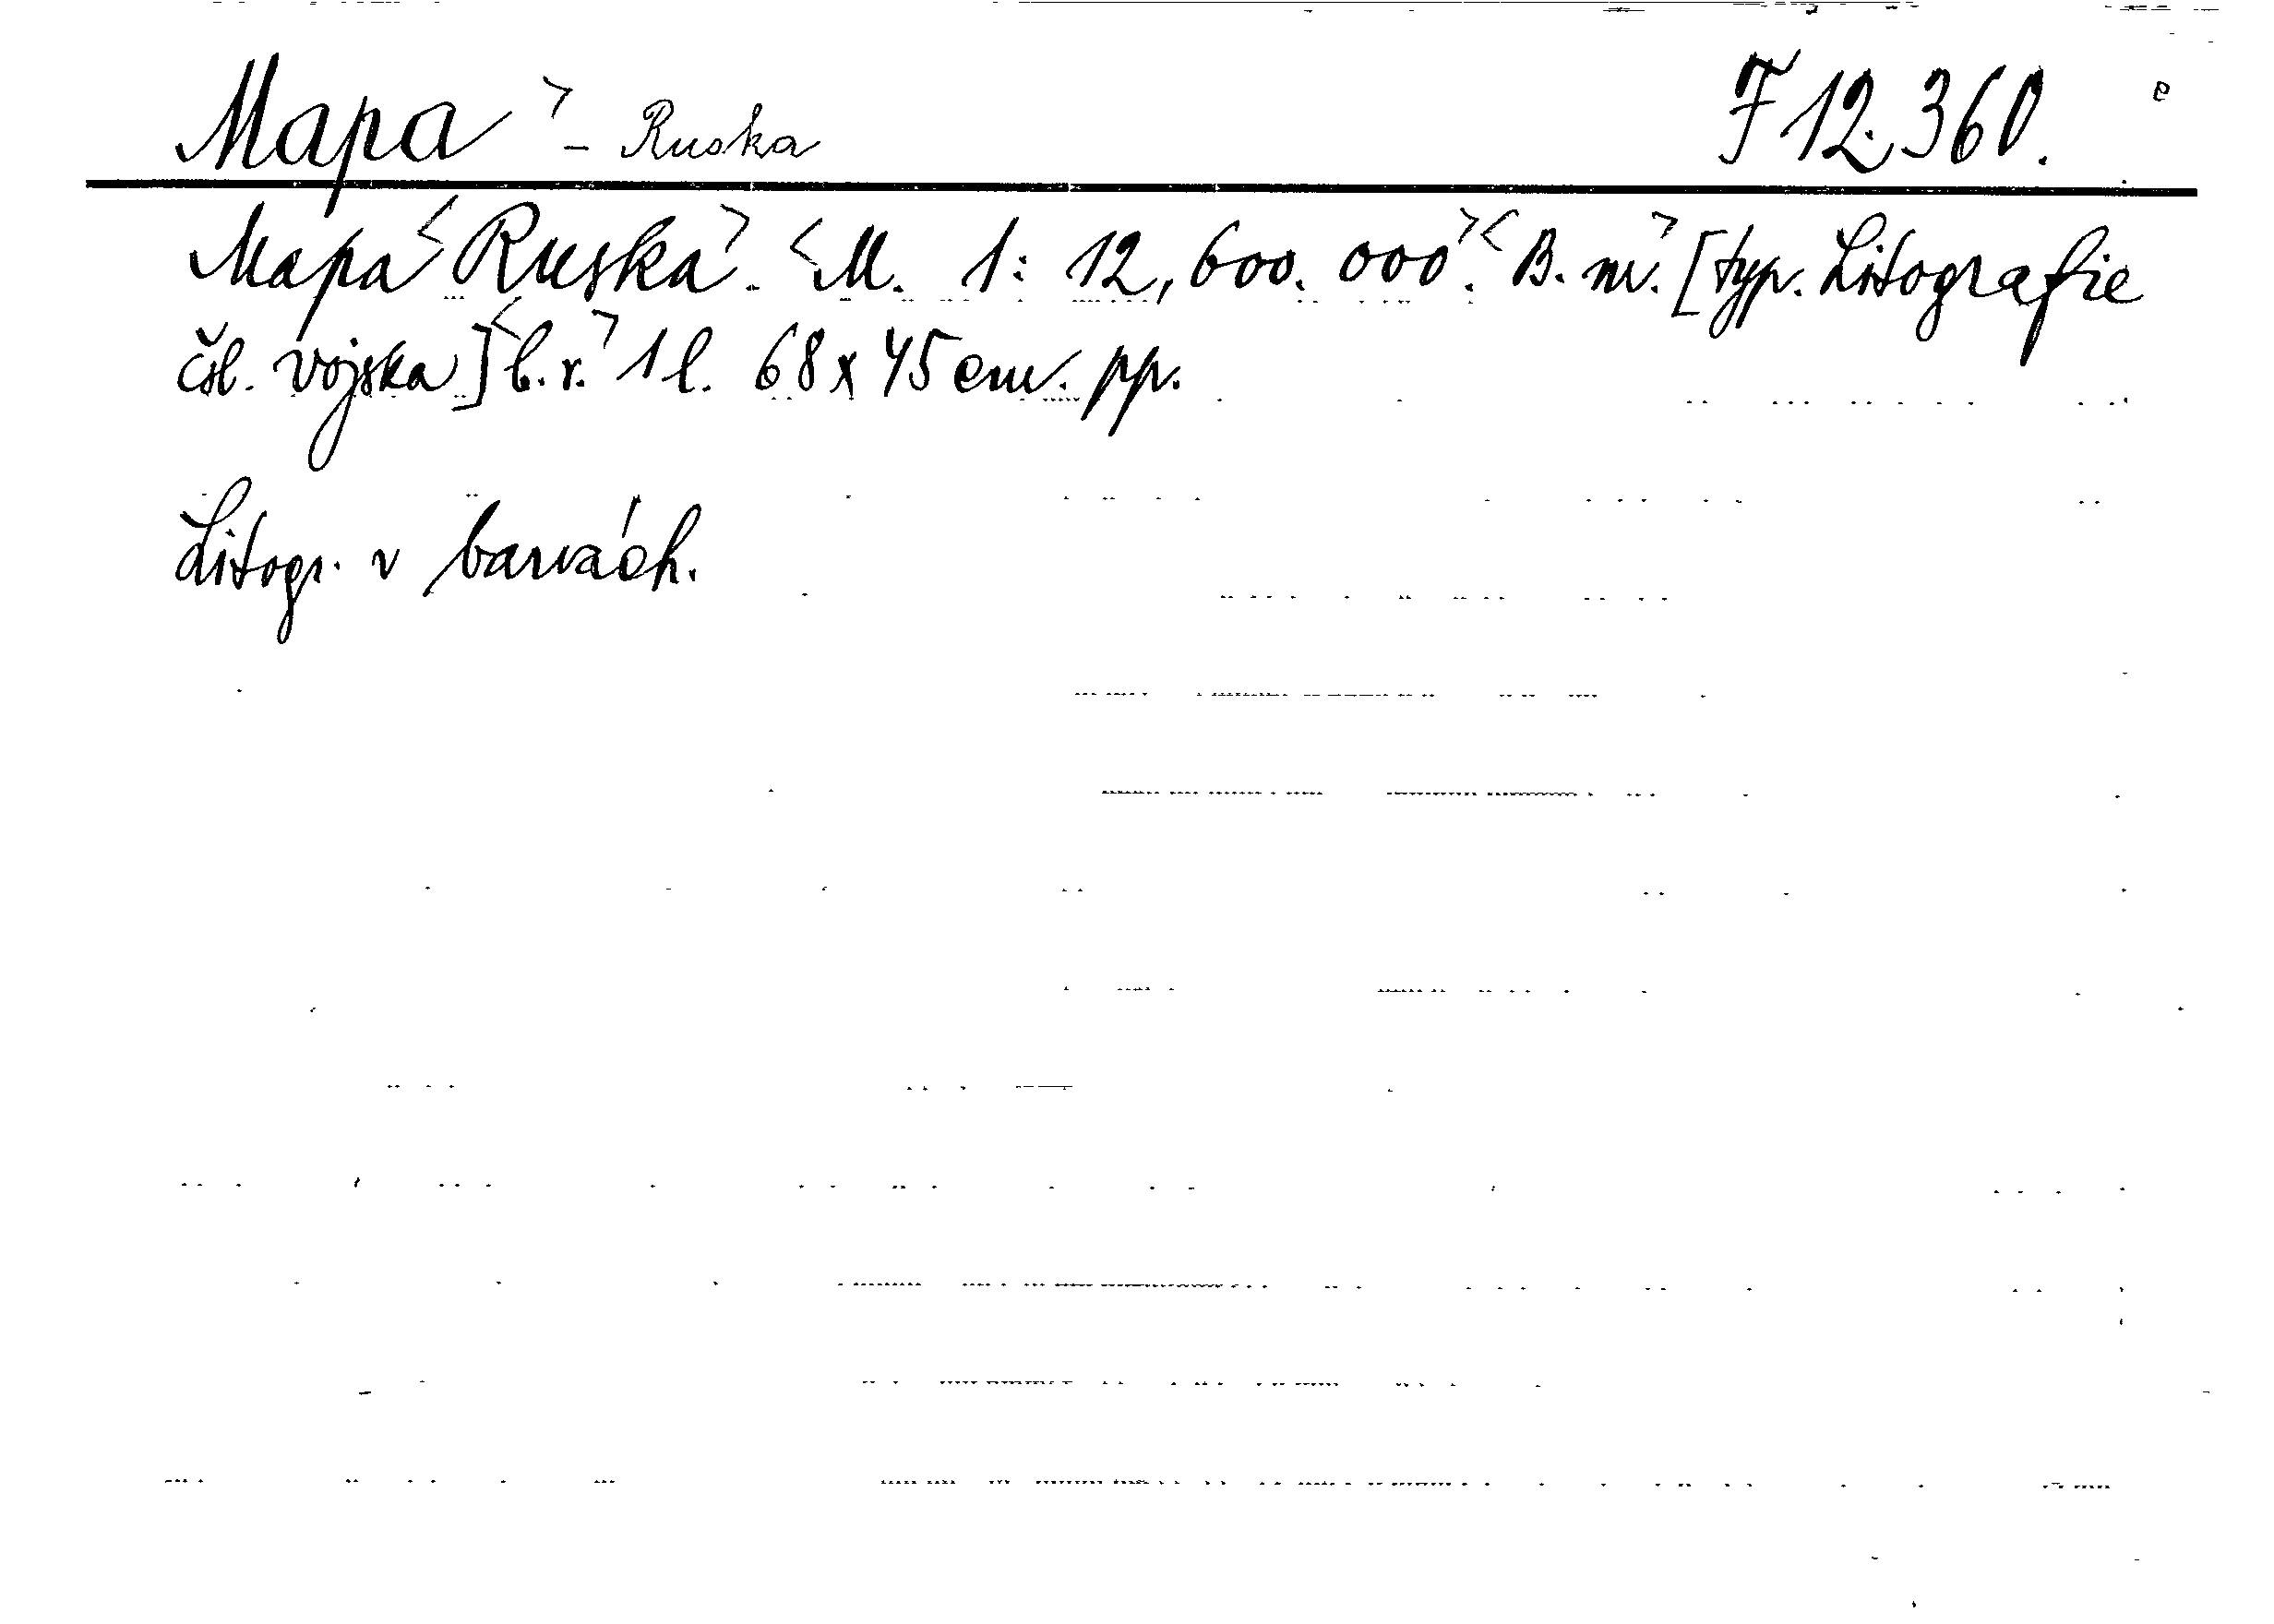 Mapa > - Ruska F 12.360. e
Mapa < Ruska >. < M. 1: 12,600.000 >. < B. m. > [typ. Litografie
čsl. vojska] < b. r. > 1 l. 68 x 45 cm. pp.
Litogr. v barvách.